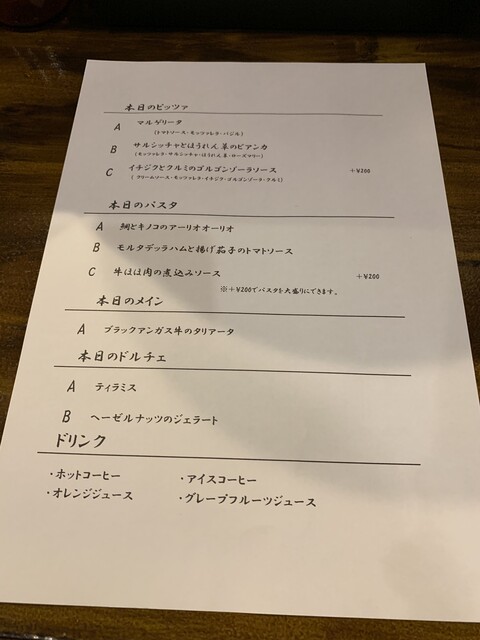 本日のピッツァ
A マルゲリータ
(トマトソース・モッツァレラ・バジル)
B サルシッチャとほうれん草のビアンカ
(モッツァレラ・サルシッチャ・ほうれん草・ローズマリー)
C イチジクとクルミのゴルゴンゾーラソース +¥200
(クリームソース・モッツァレラ・イチジク・ゴルゴンゾーラ・クルミ)
本日のパスタ
A 鯛とキノコのアーリオオーリオ
B モルタデッラハムと揚げ茄子のトマトソース
C 牛ほほ肉の煮込みソース +¥200
※+¥200でパスタを大盛りにできます。
本日のメイン
A ブラックアンガス牛のタリアータ
本日のドルチェ
A ティラミス
B ヘーゼルナッツのジェラート
ドリンク
・ホットコーヒー ・アイスコーヒー
・オレンジジュース ・グレープフルーツジュース